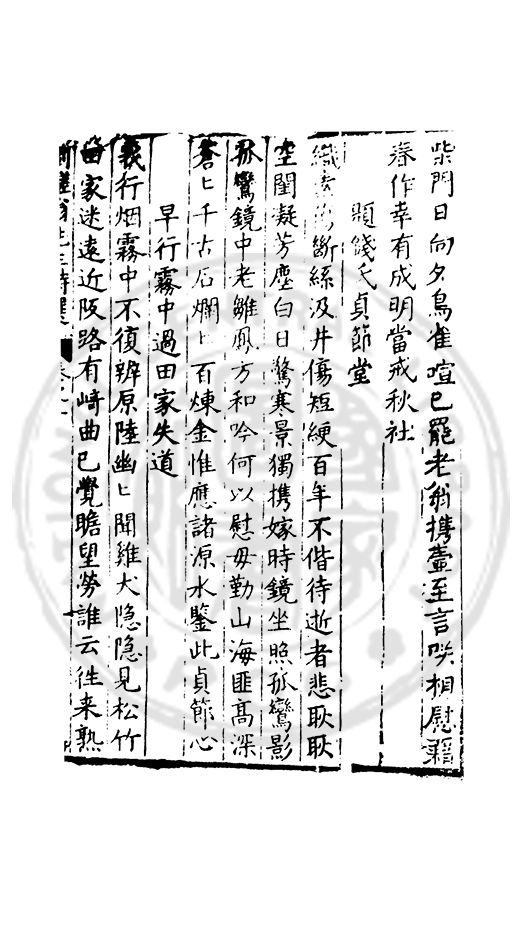 柴門日向夕鳥雀喧已罷老翁携壺至言咲相慰藉
春作幸有成明當戒秋社
題錢氏貞節堂
織素 斷絲汲井傷短綆百年不偕待逝者悲耿耿
空閨凝芳塵白日驚寒景獨携嫁時鏡坐照孤鸞影
孤鸞鏡中老雛鳳方和吟何以慰母勤山海匪高深
蒼〻千古石爛〻百煉金惟應諸源水鑒此貞節心
早行霧中過田家失道
晨行烟霧中不復辨原陸幽〻聞雞犬隐隐見松竹
田家迷遠近阪路有﨑曲已覺瞻望勞誰云徃来熟